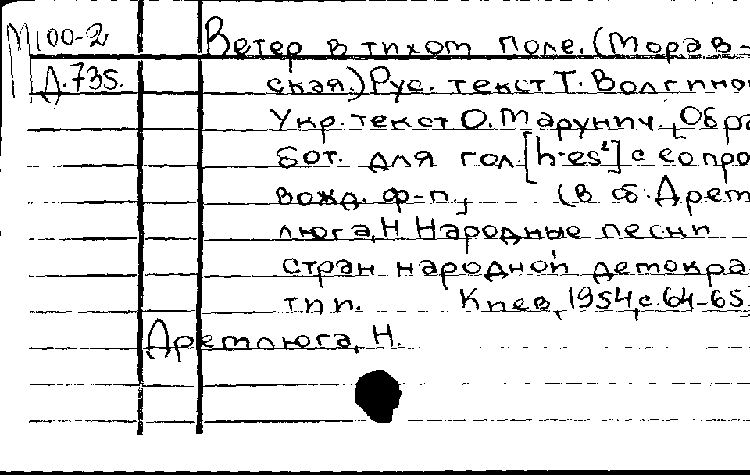 М100-2 Ветер в тихом поле. (Морав-
Д.735. ская.) Рус. текст Т. Волгино
Укр. текст О. Марунич. [Обра
бот. для гол. [h-es²] с сопро
вожд. ф-п.] (в сб. Дрем
люга, Н. Народные песни
стран народной демокра
тии. Киев, 1954, с. 64-65)
Дремлюга, Н.